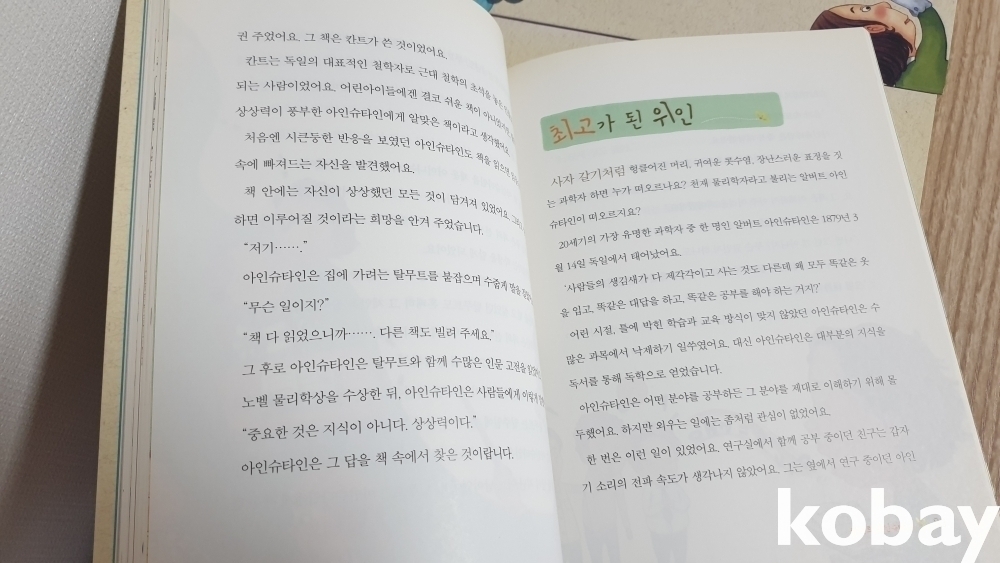 권 주었어요. 그 책은 칸트가 쓴 것이었어요.
칸트는 독일의 대표적인 철학자로 근대 철학의 초석을
되는 사람이었어요. 어린아이들에겐 결코 쉬운 책이
상상력이 풍부한 아인슈타인에게 알맞은 책이라고 생각했어요.
처음엔 시큰둥한 반응을 보였던 아인슈타인도 책을 읽으면
속에 빠져드는 자신을 발견했어요.
책 안에는 자신이 상상했던 모든 것이 담겨져 있었어요.
하면 이루어질 것이라는 희망을 안겨 주었습니다.
“저기…….”
아인슈타인은 집에 가려는 탈무트를 붙잡으며 수줍게 말을
“무슨 일이지?”
“책 다 읽었으니까……. 다른 책도 빌려 주세요.”
그 후로 아인슈타인은 탈무트와 함께 수많은 인문 고전을
노벨 물리학상을 수상한 뒤, 아인슈타인은 사람들에게
“중요한 것은 지식이 아니다. 상상력이다.”
아인슈타인은 그 답을 책 속에서 찾은 것이랍니다.
최고가 된 위인
사자 갈기처럼 헝클어진 머리, 귀여운 콧수염, 장난스러운 표정을 짓
는 과학자 하면 누가 떠오르나요? 천재 물리학자라고 불리는 알버트 아인
슈타인이 떠오르지요?
20세기의 가장 유명한 과학자 중 한 명인 알버트 아인슈타인은 1879년 3
월 14일 독일에서 태어났어요.
‘사람들의 생김새가 다 제각각이고 사는 것도 다른데 왜 모두 똑같은 옷
을 입고, 똑같은 대답을 하고, 똑같은 공부를 해야 하는 거지?’
어린 시절, 틀에 박힌 학습과 교육 방식이 맞지 않았던 아인슈타인은 수
많은 과목에서 낙제하기 일쑤였어요. 대신 아인슈타인은 대부분의 지식을
독서를 통해 독학으로 얻었습니다.
아인슈타인은 어떤 분야를 공부하든 그 분야를 제대로 이해하기 위해 몰
두했어요. 하지만 외우는 일에는 좀처럼 관심이 없었어요.
한 번은 이런 일이 있었어요. 연구실에서 함께 공부 중이던 친구는 갑자
기 소리의 전파 속도가 생각나지 않았어요. 그는 옆에서 연구 중이던 아인
kobay